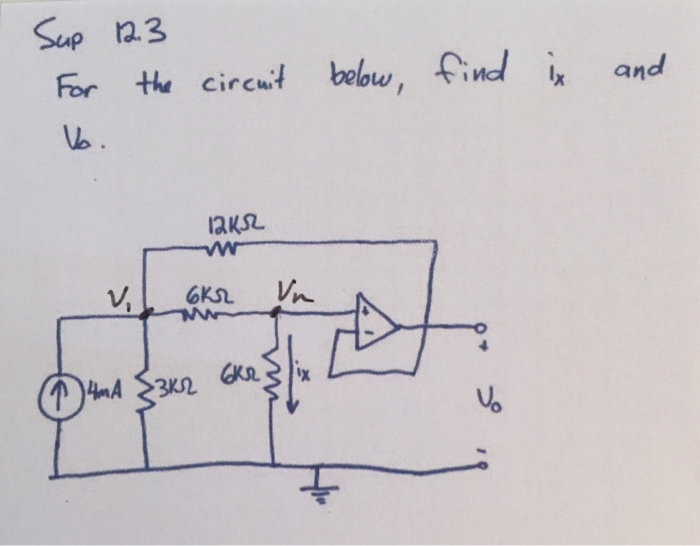 Sup 12.3
For the circuit below, find ix and
Vo.
12KΩ
V1 6KΩ Vn
+
-
4mA 3KΩ 6KΩ ix
+
Vo
-